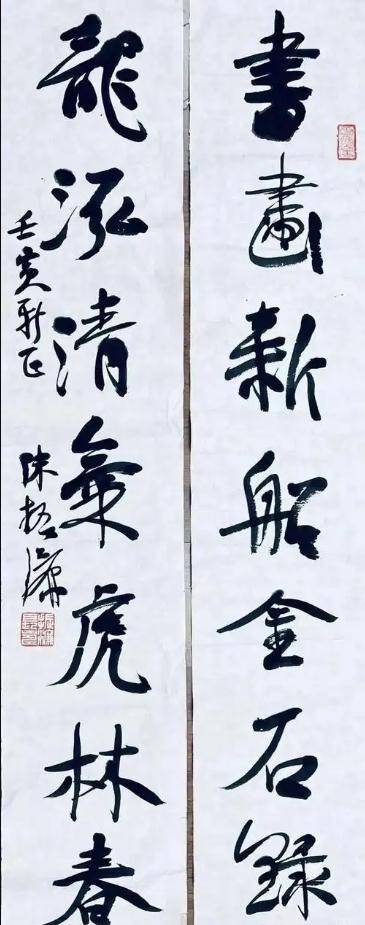 書畫新船金石錄
龍泓清氣虎林春
壬寅新正
陳振濂